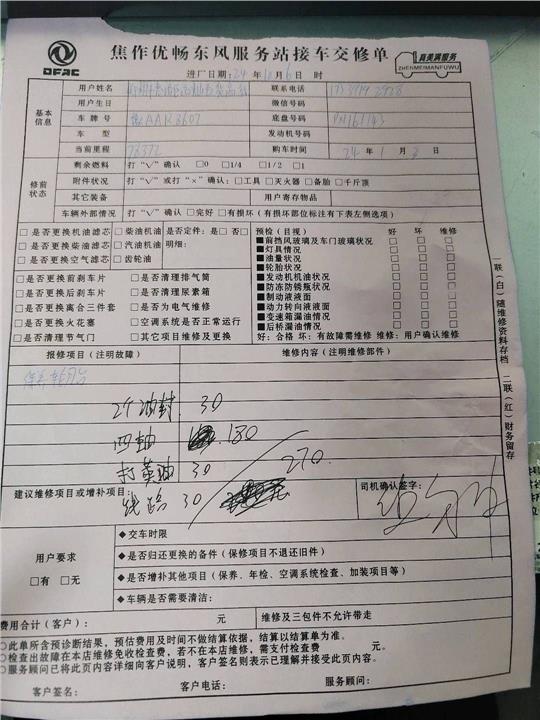 DFAC
焦作优畅东风服务站接车交修单
真美满服务
ZHENMEIMANFUWU
进厂日期:24年10月6日 时
基本信息
用户姓名 联系电话
用户生日 微信号码
车牌号 底盘号码
车型 发动机号码
当前里程 购车时间 24年1月3日
修前状态
剩余燃料 打“√”确认 □0 □1/4 □1/2 □1
附件状况 打“√”或打“×”确认:□工具 □灭火器 □备胎 □千斤顶
其它装备 用户寄存物品
车辆外部情况 打“√”确认 □完好 □有损坏(有损坏部位标注有下表左侧选项)
□是否更换机油滤芯 □柴油机油 是否定件:是□否□
□是否更换柴油滤芯 □汽油机油 明细:
□是否更换空气滤芯 □齿轮油
□是否更换前刹车片 □是否清理排气筒
□是否更换后刹车片 □是否清理尿素箱
□是否更换离合三件套 □是否为电气维修
□是否更换火花塞 □空调系统是否正常运行
□是否清理节气门 □其它项目维修及更换
预检(目视) 好 坏 维修
■前挡风玻璃及车门玻璃状况 □ □ □
■灯具情况 □ □ □
■油量状况 □ □ □
■轮胎状况 □ □ □
■发动机机油状况 □ □ □
■防冻防锈瓶状况 □ □ □
■制动液液面 □ □ □
■动力转向液液面 □ □ □
■变速箱漏油情况 □ □ □
■后桥漏油情况 □ □ □
好:合格 坏:有故障需维修 维修:用户确认维修
报修项目(注明故障) 维修内容(注明维修部件)
2个油封 30
四轴 180
打黄油 30
270
建议维修项目或增补项目:
线路 30
司机确认签字:
用户要求
□有 □无
◆交车时限
◆是否归还更换的备件(保修项目不退还旧件)
◆是否增补其他项目(保养、年检、空调系统检查、加装项目等)
◆车辆是否需要清洁:
费用合计(客户): 元 维修及三包件不允许带走
○此单所含预诊断结果,预估费用及时间不做结算依据,结算以结算单为准。
○检查出故障在本店维修免收检查费,若不在本店维修,需支付检查费 元。
○服务顾问已将此页内容详细向客户说明,客户签名则表示已理解并接受此页内容。
客户签名: 客户电话: 服务顾问:
一联(白)随维修资料存档 二联(红)财务留存